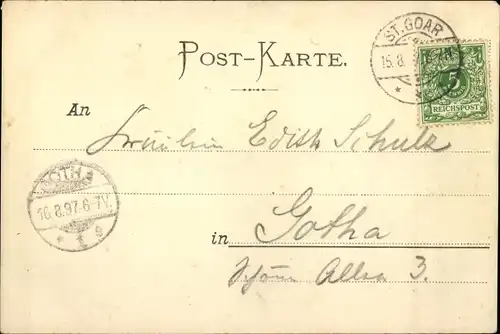 POST-KARTE.
ST. GOAR
15.8.
5
REICHSPOST
An
Fräulein Edith Schulz
GOTHA
16.8.97.6-7V.
* 1 g
in Gotha
Schöne Allee 3.